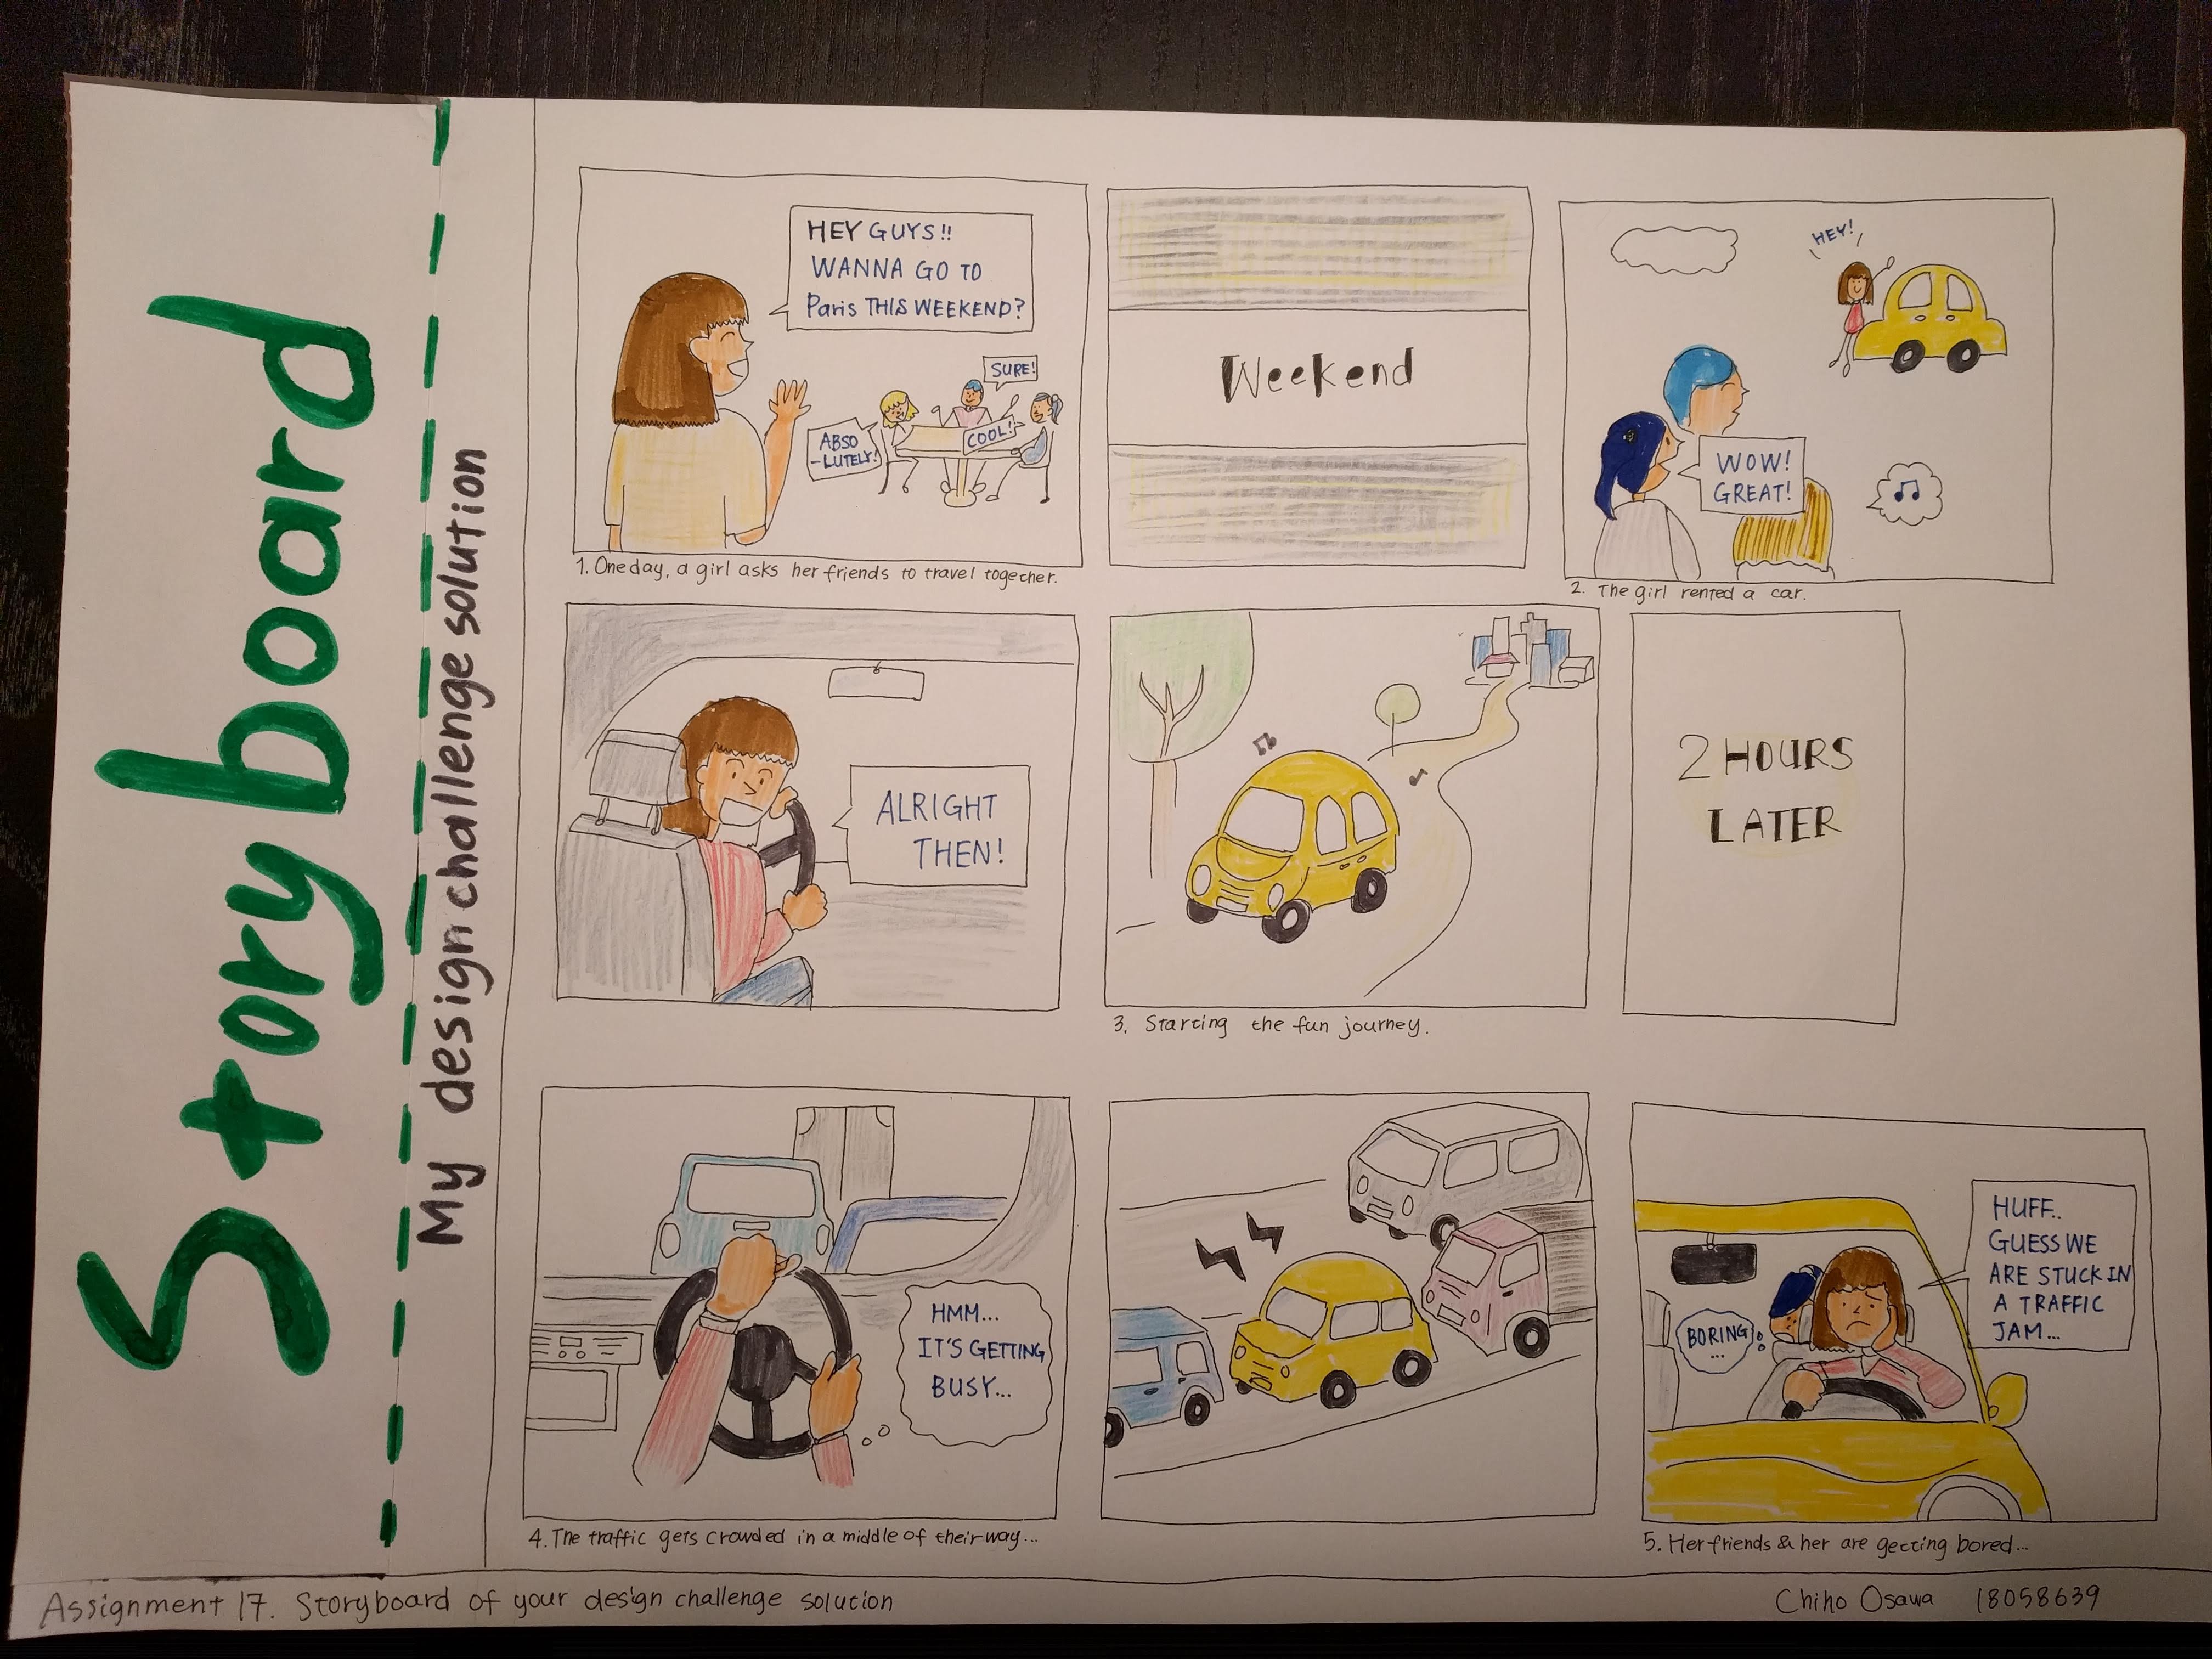 Storyboard
My design challenge solution
HEY GUYS!!
WANNA GO TO
Paris THIS WEEKEND?
SURE!
ABSO
-LUTELY!
COOL!
1. One day, a girl asks her friends to travel together.
Weekend
HEY!
WOW!
GREAT!
2. The girl rented a car.
ALRIGHT
THEN!
3. Starting the fun journey.
2 HOURS
LATER
HMM...
IT'S GETTING
BUSY...
4. The traffic gets crowded in a middle of their way...
HUFF..
GUESS WE
ARE STUCK IN
A TRAFFIC
JAM...
BORING
...
5. Her friends & her are getting bored...
Assignment 17. Storyboard of your design challenge solution
Chiho Osawa 18058639